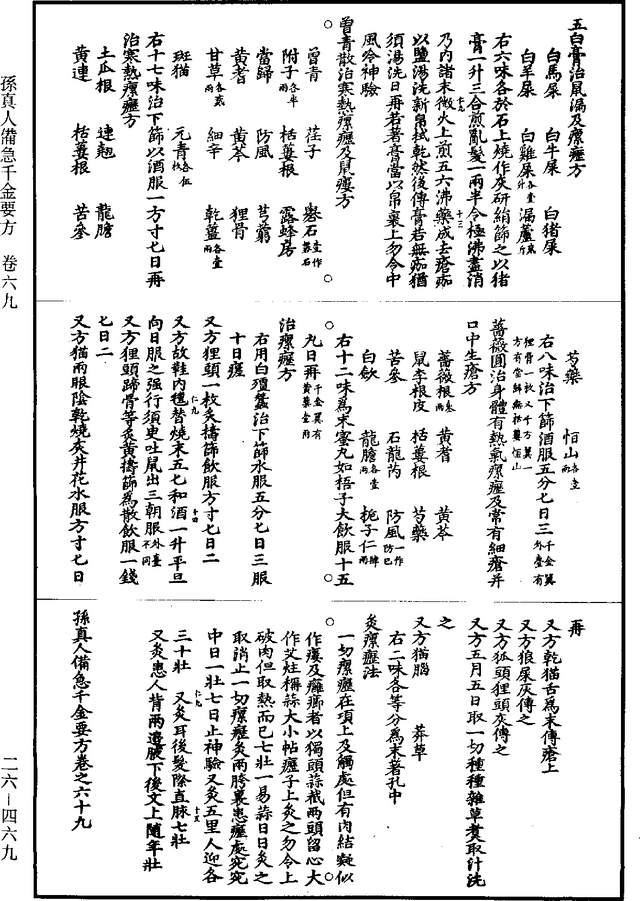 五白膏治鼠漏及瘰癧方
白馬屎　白牛屎　白猪屎
白羊屎　白雞屎各壹升　漏蘆貳斤
右六味各於石上燒作灰研絹篩之以猪
膏一升三合煎亂髮一兩半令極沸盡消
乃內諸末微火上煎五六沸藥成去瘡痂
以鹽湯洗新帛拭乾然後傅膏若無痂猶
須湯洗日再若著膏當以帛裹上勿令中
風冷神驗
曾青散治寒熱瘰癧及鼠瘻方
曾青　荏子　礜石一作礬石
附子各半兩　栝蔞根　露蜂房
當歸　防風　芎藭
黃耆　黃芩　狸骨
甘草各貳兩　細辛　乾薑各壹兩
斑猫　元青各伍枚
右十七味治下篩以酒服一方寸七日再
治寒熱瘰癧方
土瓜根　連翹　龍膽
黃連　栝蔞根　苦參
芍藥　恒山各壹兩
右八味治下篩酒服五分七日三千金翼外臺有
狸骨一枚又千金翼一方有當歸無栝蔞恒山
薔薇圓治身體有熱氣瘰癧及常有細瘡并
口中生瘡方
薔薇根叁兩　黃耆　黃芩
鼠李根皮　栝蔞根　芍藥
苦參　石龍芮　防風一作防巳
白斂　龍膽各壹兩　梔子仁肆兩
右十二味為末蜜丸如梧子大飲服十五
九日再千金翼有黃蘗壹兩
治瘰癧方
右用白殭蠶治下篩水服五分七日三服
十日瘥
又方狸頭一枚炙擣篩飲服方寸七日二
又方故鞋內氊替燒末五七和酒一升平旦
向日服之强行須臾吐鼠出三朝服外臺不同
又方狸頭蹄骨等炙黃擣篩為散飲服一錢
七日二
又方猫兩服陰乾燒灰井花水服方寸七日
再
又方乾猫舌為末傅瘡上
又方狼屎灰傅之
又方狐頭狸頭灰傅之
又方五月五日取一切種種雜草煑取汁洗
之
又方猫腦　莽草
右二味各等分為末著孔中
灸瘰癧法
一切瘰癧在項上及觸處但有肉結凝似
作瘻及癰癤者以獨頭蒜截兩頭留心大
作艾炷稱蒜大小帖癧子上灸之勿令上
破肉但取熱而已七壯一易蒜日日灸之
取消止一切瘰癧灸兩胯裏患癧處宛宛
中日一壯七日止神驗又灸五里人迎各
三十壯　又灸耳後髮際直脉七壯
又灸患人背兩邊腋下後文上隨年壯
孫真人備急千金要方卷之六十九
孫真人備急千金要方　卷六九
二六－四六九